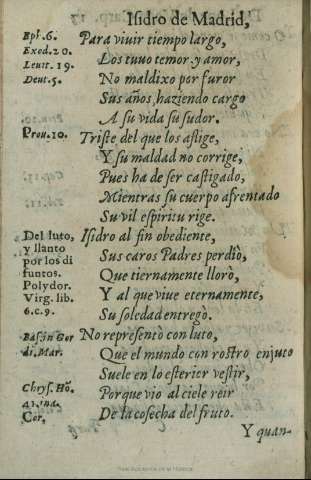 Isidro de Madrid,
Eph. 6. Para viuir tiempo largo,
Exod. 20. Los tuuo temor y amor,
Leuit. 19. No maldixo por furor
Deut. 5. Sus años, haziendo cargo
A su vida su sudor.
Prou. 10. Triste del que los aflige,
Y su maldad no corrige,
Pues ha de ser castigado,
Mientras su cuerpo afrentado
Su vil espiritu rige.
Del luto, Isidro al fin obediente,
y llanto Sus caros Padres perdiò,
por los di Que tiernamente llorò,
funtos.
Polydor. Y al que viue eternamente,
Virg. lib. Su soledad entregò.
6. c. 9.
Basi. in Gor No representò con luto,
di. Mar. Que el mundo con rostro enjuto
Suele en lo esterior vestir,
Chrys. Hō. Porque vio al cielo reir
41. in 1. De la cosecha del fruto.
Cor,
Y quan-